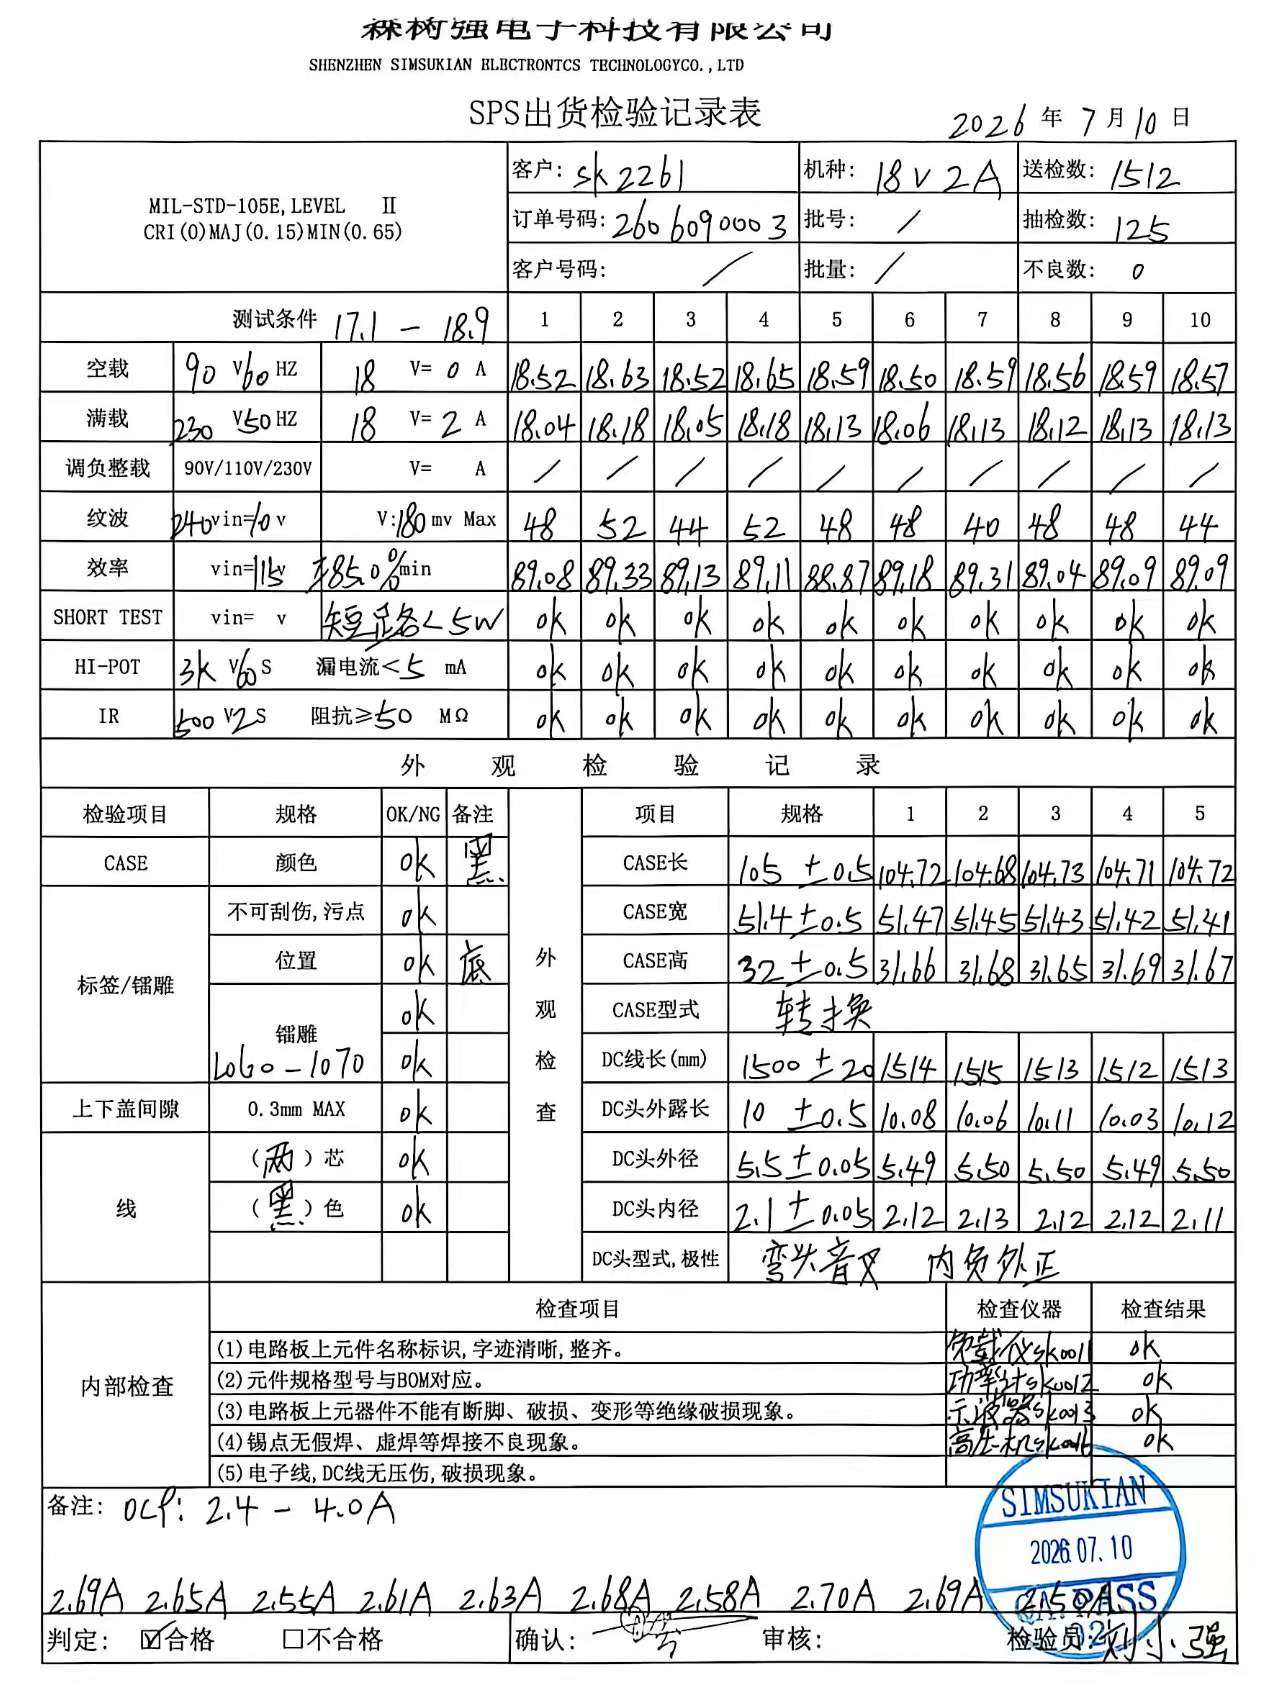 森树强电子科技有限公司
SHENZHEN SIMSUKIAN ELECTRONTCS TECHNOLOGYCO.,LTD
SPS出货检验记录表
2026 年 7 月 10 日
MIL-STD-105E,LEVEL Ⅱ
CRI(0)MAJ(0.15)MIN(0.65)
客户: SK2261 机种: 18V2A 送检数: 1512
订单号码: 2606090003 批号: / 抽检数: 125
客户号码: / 批量: / 不良数: 0
测试条件 17.1 - 18.9 1 2 3 4 5 6 7 8 9 10
空载 90 V 60 HZ 18 V= 0 A 18.52 18.63 18.52 18.65 18.59 18.50 18.59 18.56 18.59 18.57
满载 230 V 50 HZ 18 V= 2 A 18.04 18.18 18.05 18.18 18.13 18.06 18.13 18.12 18.13 18.13
调负整载 90V/110V/230V V= A / / / / / / / / / /
纹波 240 vin=10 v V:180 mv Max 48 52 44 52 48 48 40 48 48 44
效率 vin=115v 85.0% min 89.08 89.33 89.13 89.11 88.87 89.18 89.31 89.04 89.09 89.09
SHORT TEST vin= v 短路<5W OK OK OK OK OK OK OK OK OK OK
HI-POT 3K V 60 S 漏电流<5 mA OK OK OK OK OK OK OK OK OK OK
IR 500 V 2 S 阻抗≥50 MΩ OK OK OK OK OK OK OK OK OK OK
外观检验记录
检验项目 规格 OK/NG 备注 外观检查 项目 规格 1 2 3 4 5
CASE 颜色 OK 黑 CASE长 105±0.5 104.72 104.68 104.73 104.71 104.72
标签/镭雕 不可刮伤,污点 OK CASE宽 51.4±0.5 51.47 51.45 51.43 51.42 51.41
位置 OK 底 CASE高 32±0.5 31.66 31.68 31.65 31.69 31.67
镭雕 OK CASE型式 转换
LOGO-1070 OK DC线长(mm) 1500±20 1514 1515 1513 1512 1513
上下盖间隙 0.3mm MAX OK DC头外露长 10±0.5 10.08 10.06 10.11 10.03 10.12
线 (两)芯 OK DC头外径 5.5±0.05 5.49 5.50 5.50 5.49 5.50
(黑)色 OK DC头内径 2.1±0.05 2.12 2.13 2.12 2.12 2.11
DC头型式,极性 弯头音叉 内负外正
内部检查 检查项目 检查仪器 检查结果
(1)电路板上元件名称标识,字迹清晰,整齐。 负载仪SK0011 OK
(2)元件规格型号与BOM对应。 功率计SK0012 OK
(3)电路板上元器件不能有断脚、破损、变形等绝缘破损现象。 示波器SK0013 OK
(4)锡点无假焊、虚焊等焊接不良现象。 高压机SK0016 OK
(5)电子线,DC线无压伤,破损现象。
备注: OCP: 2.4 - 4.0A
SIMSUKIAN
2026.07.10
QA PASS
02
2.69A 2.65A 2.55A 2.61A 2.63A 2.68A 2.58A 2.70A 2.69A 2.50A
判定: ☑合格 □不合格 确认: 审核: 检验员: 刘小强